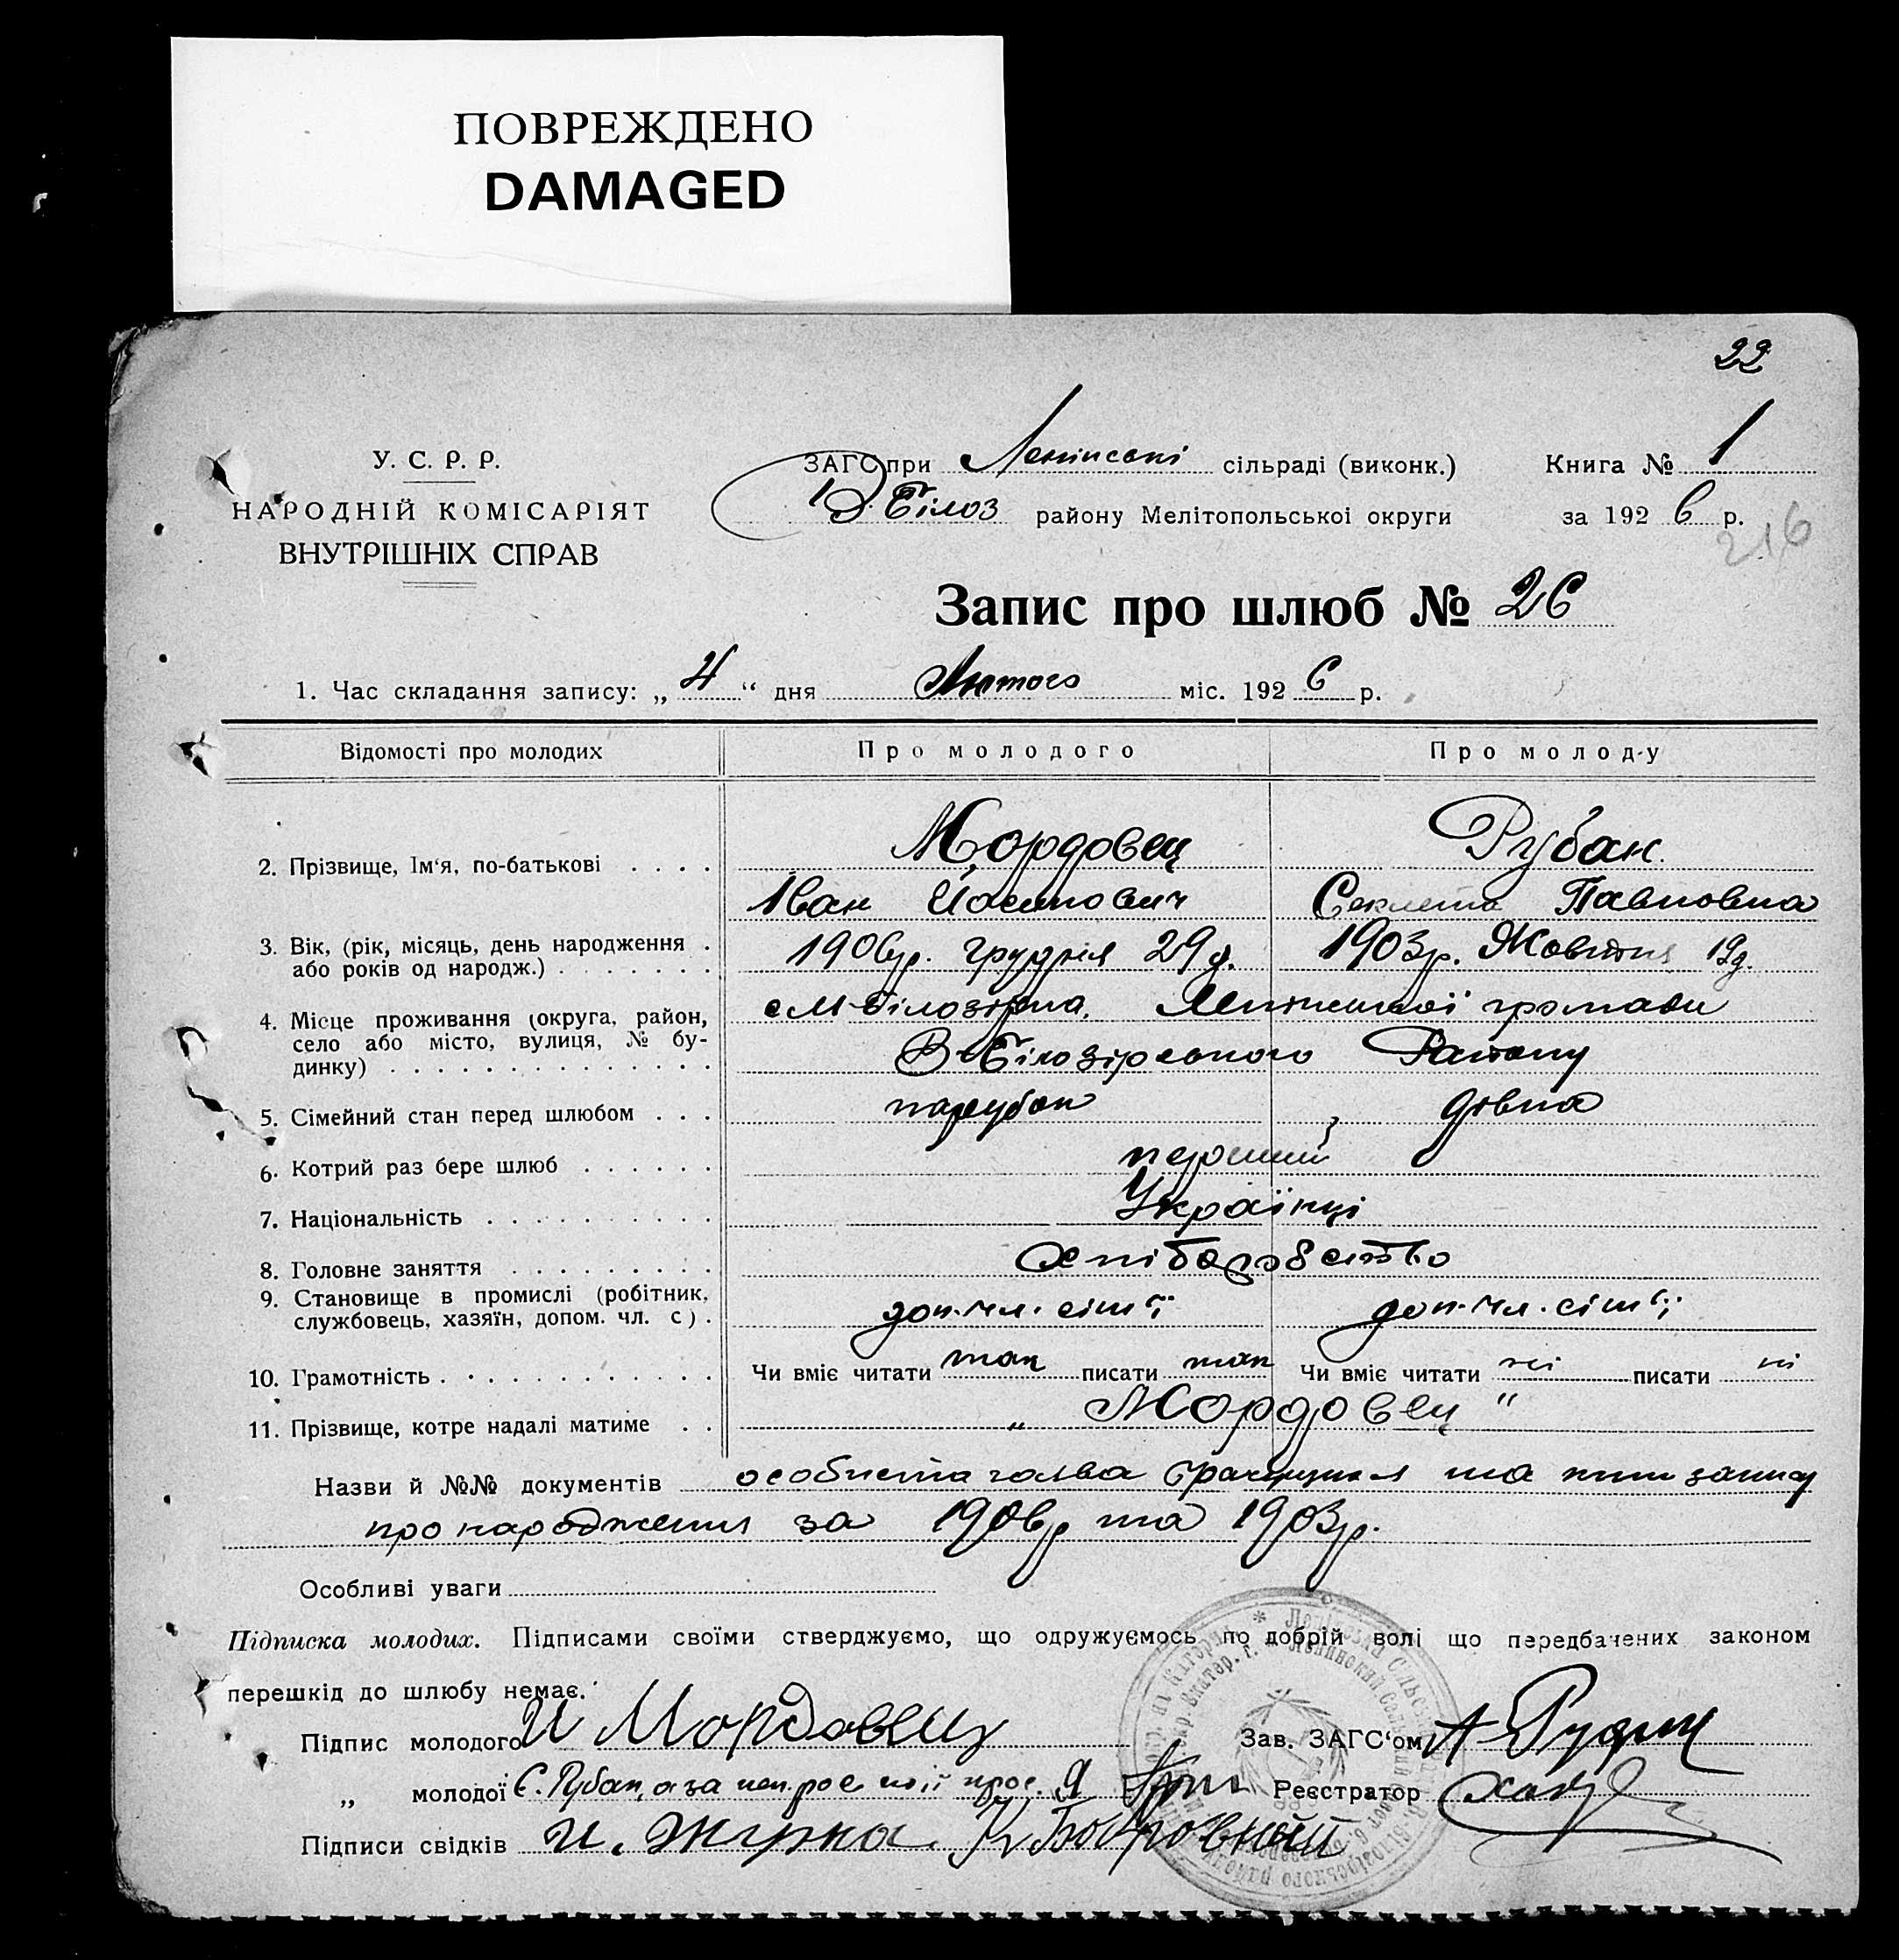 ПОВРЕЖДЕНО
DAMAGED
22
У. С. Р. Р.
НАРОДНІЙ КОМІСАРІЯТ
ВНУТРІШНІХ СПРАВ
ЗАГС при Ленінські сільраді (виконк.) Книга № 1
В Білоз району Мелітопольської округи за 1926 р.
216
Запис про шлюб № 26
1. Час складання запису: „ 4 “ дня Лютого міс. 1926 р.
Відомості про молодих Про молодого Про молоду
Мордовец Рубан
2. Прізвище, Ім‘я, по-батькові . . . .
Іван Павловна
3. Вік, (рік, місяць, день народження . 1906р. грудня 29 д. 1903р. Жовтня 19д.
або років од народж.) . . . . . . .
4. Місце проживання (округа, район, с М-Білозірка, Ленінської громади
село або місто, вулиця, № бу- В-Білозірського Району
динку) . . . . . . . . . . . . . .
5. Сімейний стан перед шлюбом . . . парубок дівка
6. Котрий раз бере шлюб . . . . . . перший
7. Національність . . . . . . . . . . Українці
8. Головне заняття . . . . . . . . . Хліборобство
9. Становище в промислі (робітник, доп. чл. сім'ї доп. чл. сім'ї
службовець, хазяїн, допом. чл. с) .
10. Грамотність . . . . . . . . . . . . Чи вміє читати так писати так Чи вміє читати ні писати ні
11. Прізвище, котре надалі матиме . . „ Мордовец "
Назви й №№ документів особиста та запису
про народження за 1906р та 1903р.
Особливі уваги
Підписка молодих. Підписами своїми стверджуємо, що одружуємось по добрій волі що передбачених законом
перешкід до шлюбу немає.
Підпис молодого И Мордовец Зав. ЗАГС‘ом
„ молодої Є. Рубан, а за Реєстратор
Підписи свідків И. Журка. К Бобровный